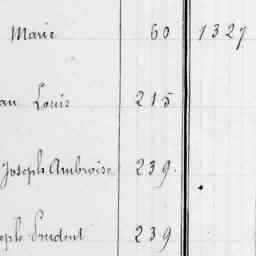 Marie 60 1327
an Louis 215
Joseph Ambroise 239.
eph Prudent 239